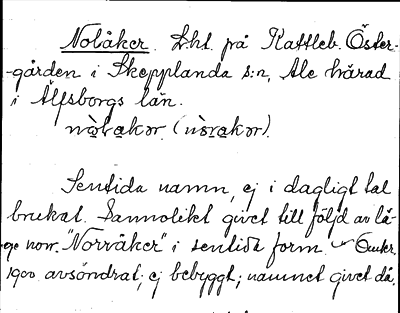 Nolåker. Lht. på Kattleb. Öster-
-gården i Skepplanda s:n, Ale härad
i Älfsborgs län.
nòlakər. (nòrakər).
Sentida namn, ej i dagligt tal
brukat. Sannolikt givet till följd av lä-
ge norr. "Norråker" i sentida form. Omkr.
1900 avsöndrat; ej bebyggt; namnet givet då.